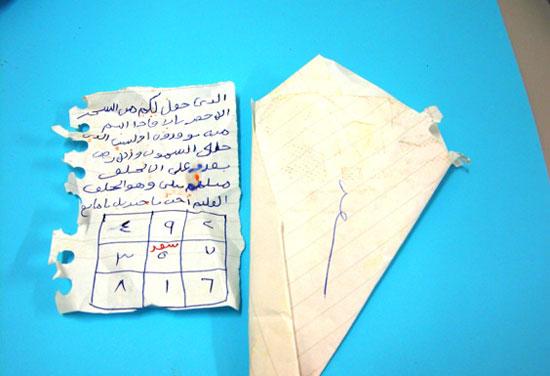 الذي جعل لكم من الشجر
الاخضر نارا فاذا انتم
منه توقدون اوليس الذي
خلق السموت والارض
بقدر على ان يخلق
مثلهم بلى وهو الخلق
العليم اجب يا جبريل يا
٢ ٩ ٤
٧ ٥ ٣
٦ ١ ٨